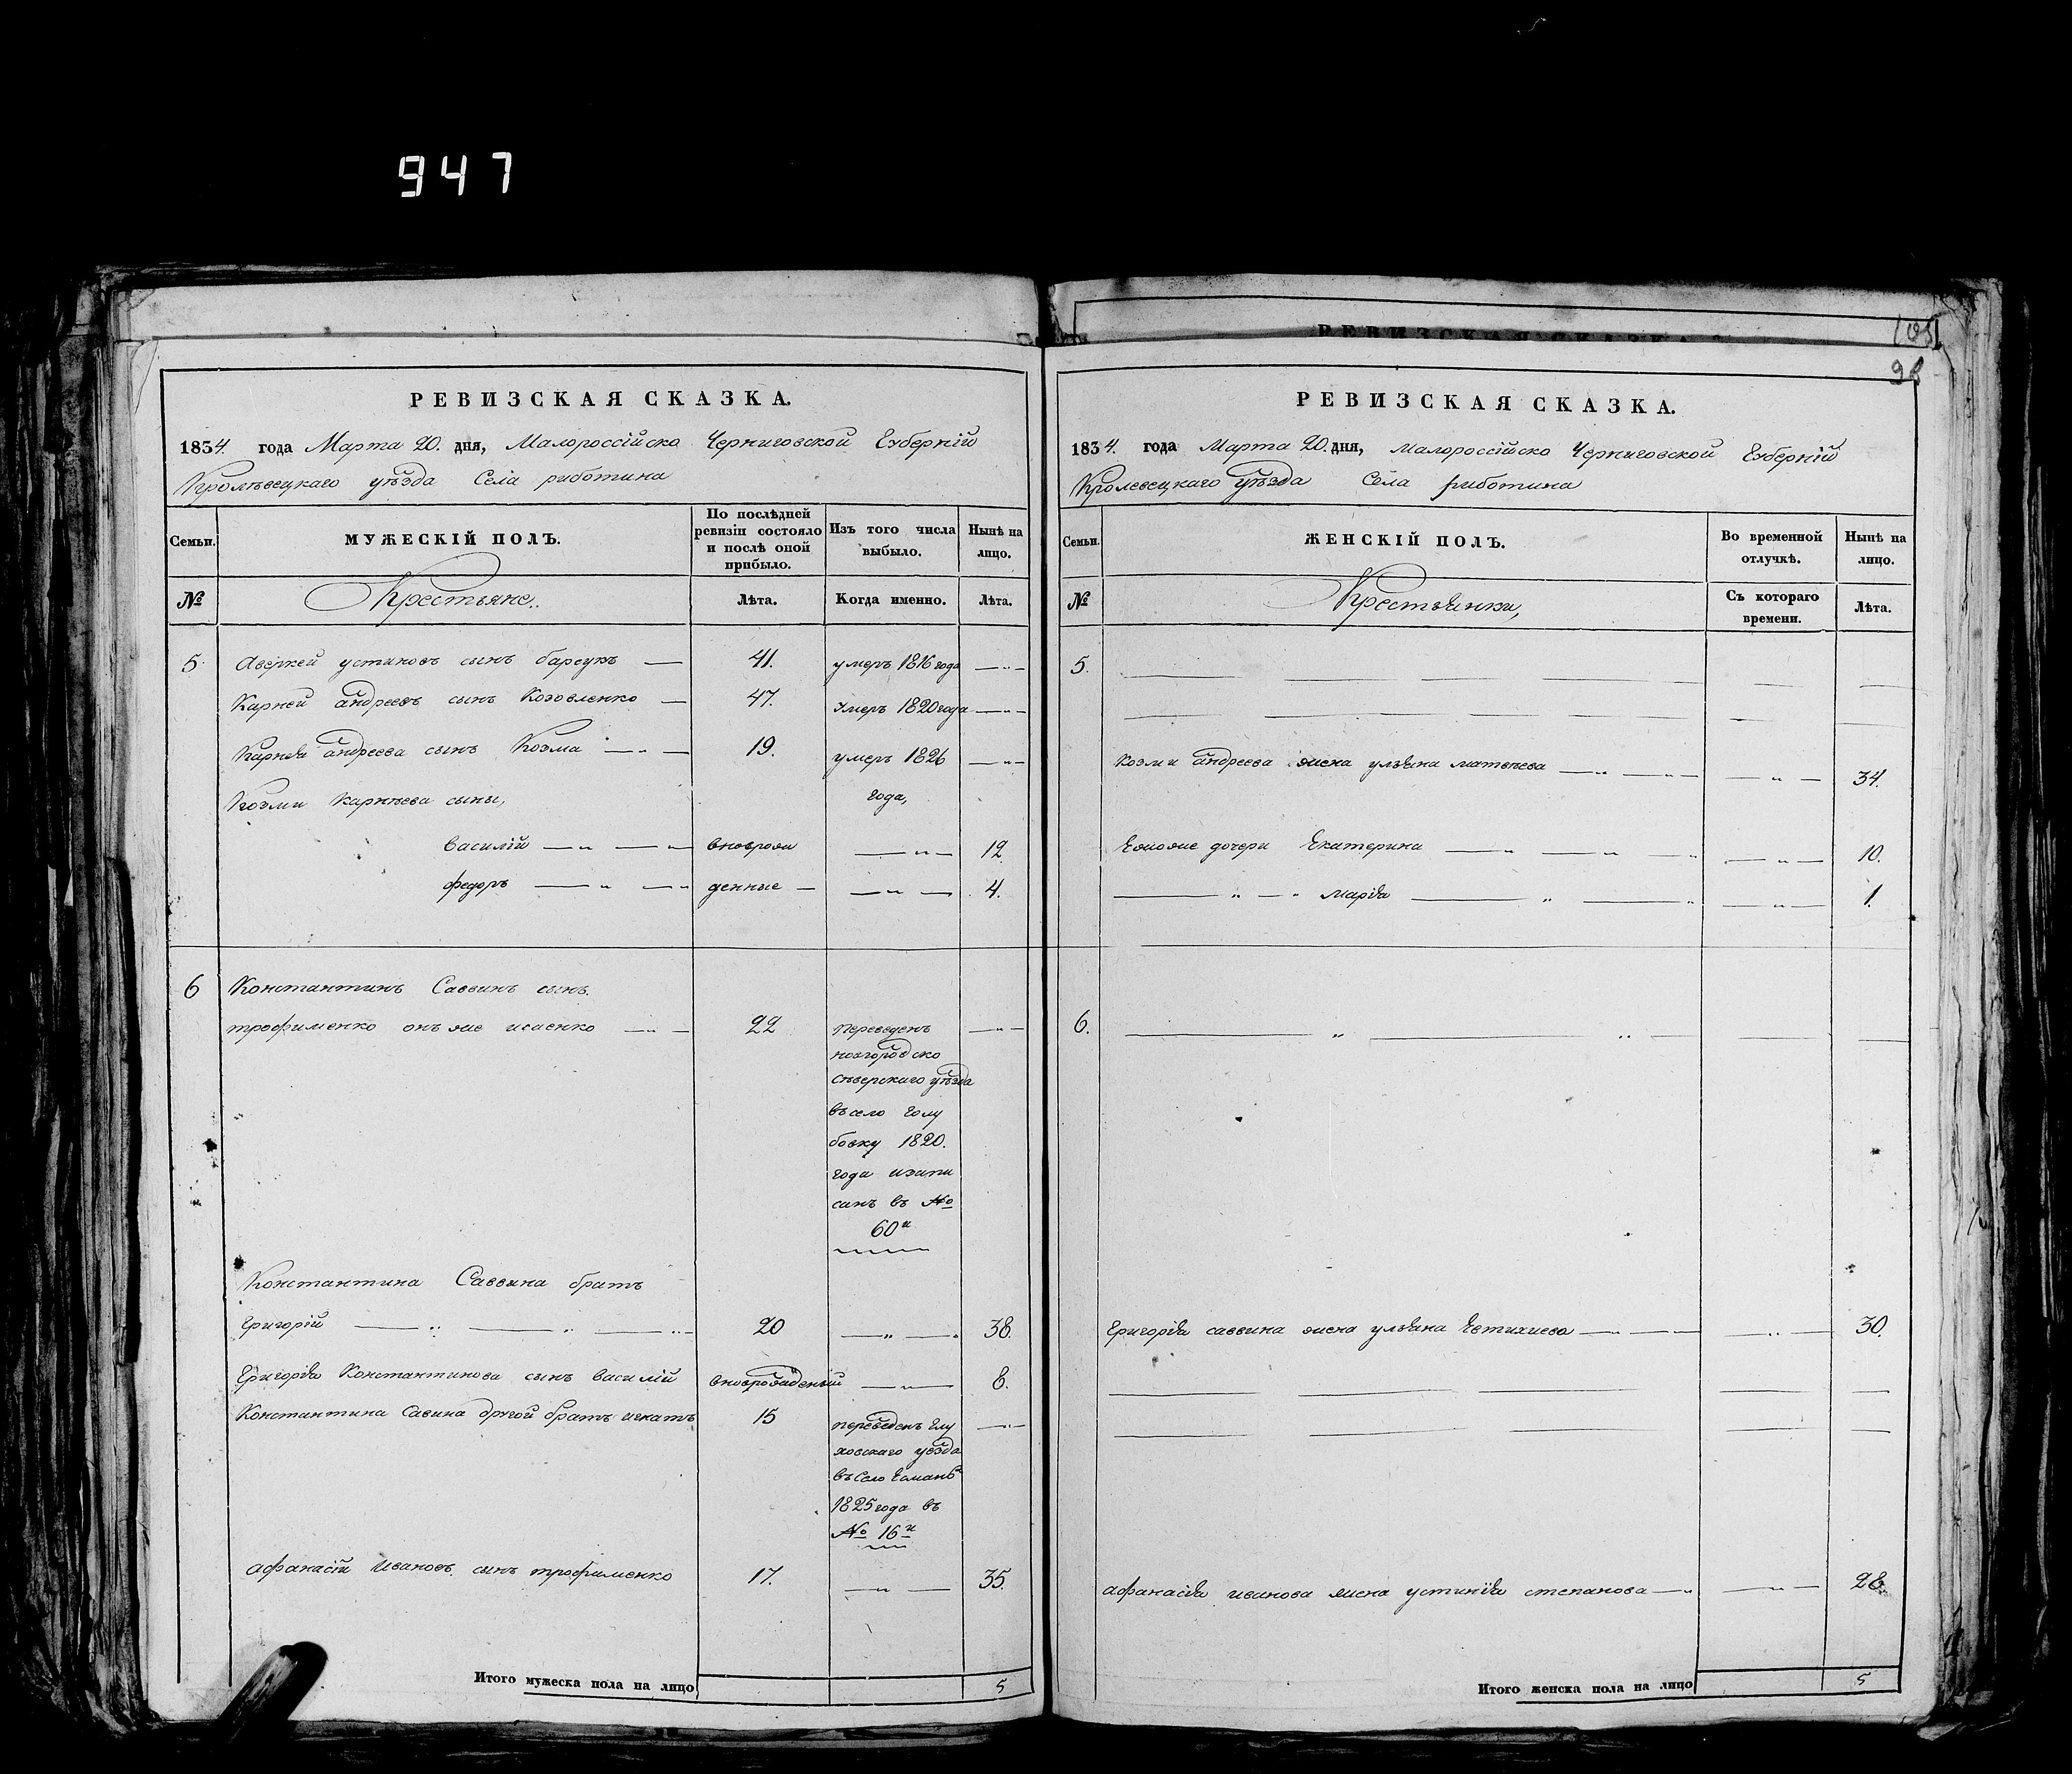 947
РЕВИЗСКАЯ СКАЗКА.
1834. года Марта 20. дня, Малороссійско Черниговской Губерній
Кролѣвецкаго уѣзда Села риботина
Семьи.
МУЖЕСКІЙ ПОЛЪ.
По послѣдней ревизіи состояло и послѣ оной прибыло.
Изъ того числа выбыло.
Нынѣ на лицо.
№ Крестьяне. Лѣта. Когда именно. Лѣта.
5. Аверкей устиновъ сынъ барсукъ — 41. умеръ 1816 года
Карней андреевъ сынъ Козовленко — 47. умеръ 1820 года
Карнея андреева сынъ Козма 19. умеръ 1826
Козми Карнѣева сыны, года,
василій вноврож 12.
федоръ денные — 4.
6 Константинъ Саввинъ сынъ.
трофименко онъ же исаенко 22 переведенъ
новгородско
сѣверскаго уѣзда
въ село голу
бовку 1820.
года изапи
санъ въ №
60
Константина Саввина братъ
Григорій 20 38.
Григорія Константинова сынъ василій вноврожденый 8.
Константина Савина другой братъ игнатъ 15 переведенъ глу
ховскаго уезда
въ Село Есмань
1825 года въ
№ 16
афанасій Ивановъ сынъ трофименко 17. 35.
Итого мужеска пола на лицо 5
РЕВИЗСКАЯ СКАЗКА
105
98
РЕВИЗСКАЯ СКАЗКА.
1834. года Марта 20. дня, Малороссійско Черниговской Губерній
Кролевецкаго уѣзда Села риботина
Семьи.
ЖЕНСКІЙ ПОЛЪ.
Во временной отлучкѣ.
Нынѣ на лицо.
№ Крестьянки, Съ котораго времени. Лѣта.
5.
Козми андреева жена ульяна матвѣева 34.
Егоже дочери Екатерина 10.
марія 1.
6.
Григорія саввина жена ульяна 30.
афанасія иванова жена устинія степанова 28.
Итого женска пола на лицо 5